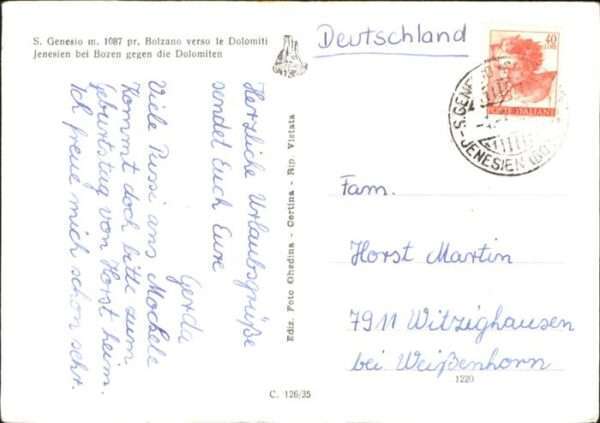 S. Genesio m. 1087 pr. Bolzano verso le Dolomiti
Jenesien bei Bozen gegen die Dolomiten
Deutschland
40
LIRE
POSTE ITALIANE
S. GENESIO
JENESIEN (BO
Herzliche Urlaubsgrüße
sendet Euch Eure
Gerda
Viele Pussi ans Mochele
Kommt doch bitte zum
Geburtstag von Horst heim.
Ich freue mich schon sehr.
Ediz. Foto Ghedina - Cortina - Rip. Vietata
Fam.
Horst Martin
7911 Witzighausen
bei Weißenhorn
1220
C. 126/35